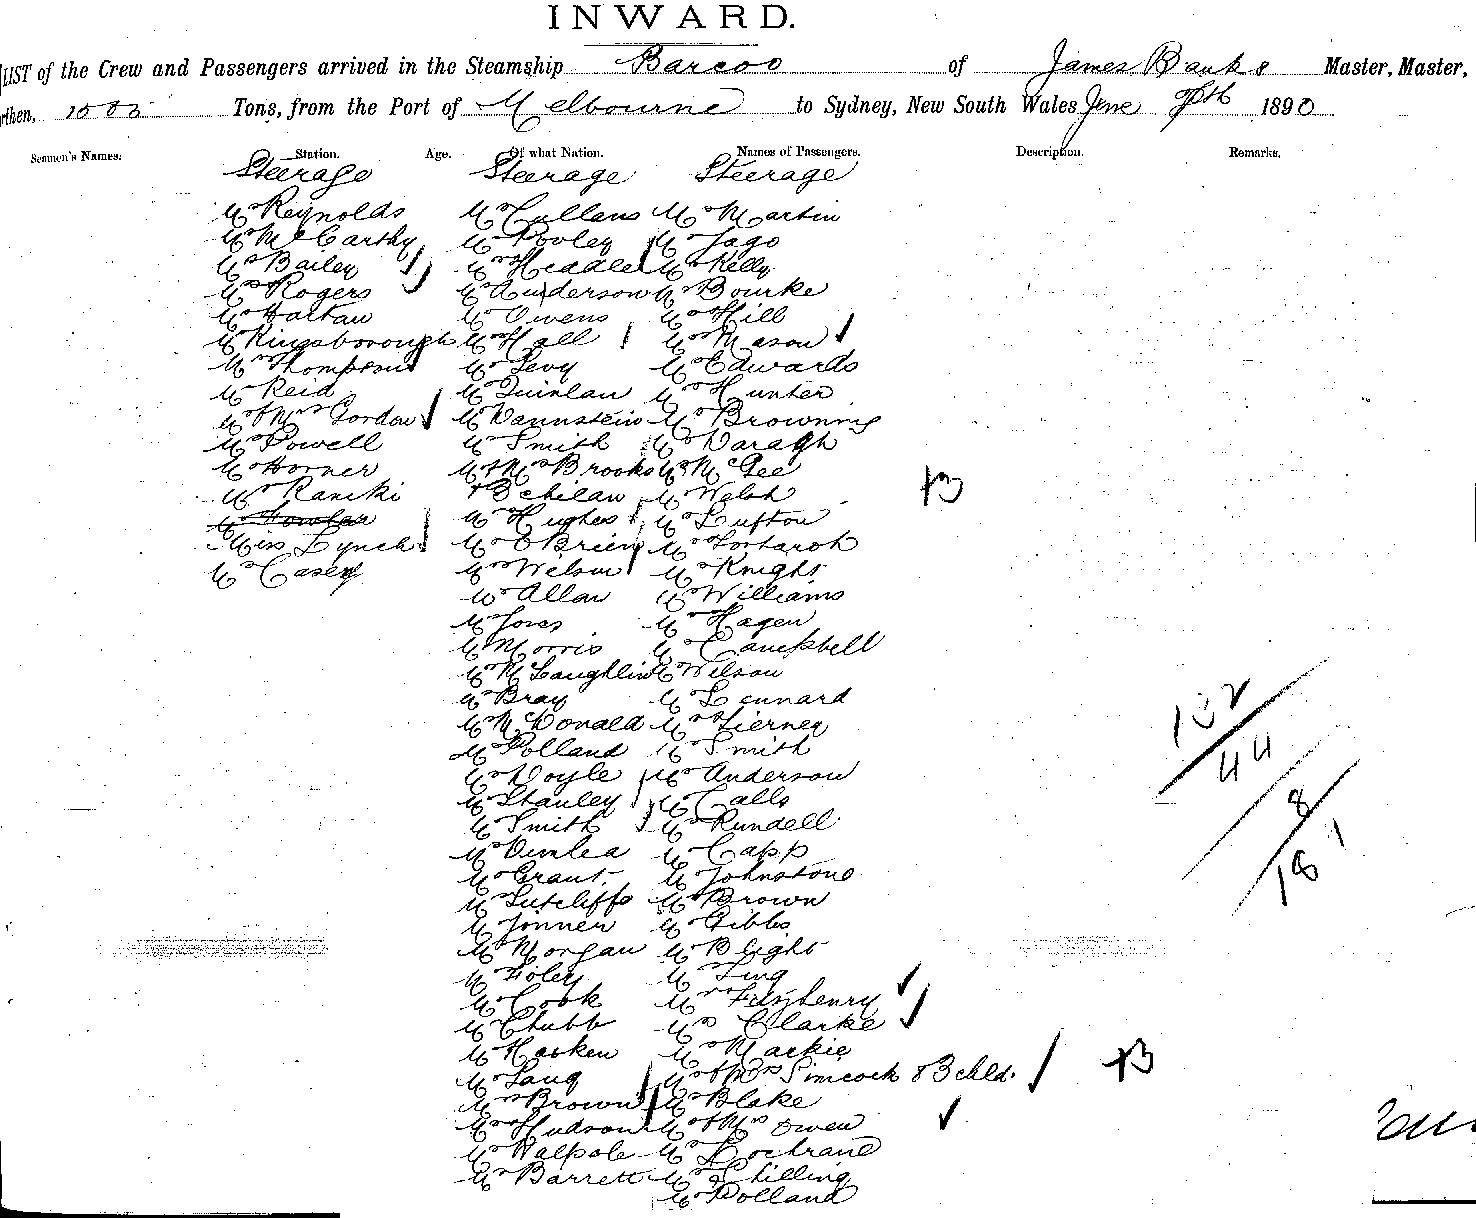 INWARD.
LIST of the Crew and Passengers arrived in the Steamship Barcoo of James Banks Master, Master,
rthen, 1505 Tons, from the Port of Melbourne to Sydney, New South Wales June 1890
Seamen's Names. Station. Age. Of what Nation. Names of Passengers. Description. Remarks.
Steerage Steerage Steerage
Mr Reynolds Mr Cullens Mr Martin
Mr McCarthy Mr Pooley Mr Jago
Mrs Bailey Mrs Heddle Mr Kelly
Mrs Rogers Mr Anderson Mr Bourke
Mr Hartau Mr Owens Mr Hill
Mr Kingsborough Mrs Hall Mrs Mason
Mrs Thompson Mr Levy Mr Edwards
Mr Reid Mr Quinlan Mr Hunter
Mr & Mrs Gordon Mr Dannstein Mr Browning
Mr Powell Mr Smith Mr Daragh
Mr Horner Mr & Mrs Brooks Mr McGee
Mr Ranski & 3 chilan Mr Welsh
Mr Fowler Mrs Hughes Mr Lufton
Miss Lynch Mr OBrien Mr
Mr Casey Mrs Welson Mr Knight
Mr Allan Mr Williams
Mr Jones Mr Hagen
Mr Morris Mr Campbell
Mr McLaughlin Mr Wilson
Mr Bray Mr Lennard
Mr McDonald Mr Tierney
Mr Polland Mr Smith
Mr Doyle Mr Anderson
Mr Stanley Mr Calls
Mr Smith Mr Rundell
Mr Dimlea Mr Capp
Mr Grant Mr Johnstone
Mr Sutcliffe Mr Brown
Mr Jonner Mr Gibbs
Mr Morgan Mr Blight
Mr Foley Mr Ting
Mr Cook Mrs Fitzhenry
Mr Chubb Mrs Clarke
Mr Hasken Mr Mackie
Mr Lang Mr & Mrs Simcock & 3 chld.
Mrs Brown Mr Blake
Mrs Hudson Mr & Mrs Owen
Mr Walpole Mr Cochrane
Mr Barrett Mr Shilling
Mr Polland
+3
132
44
8
181
+3